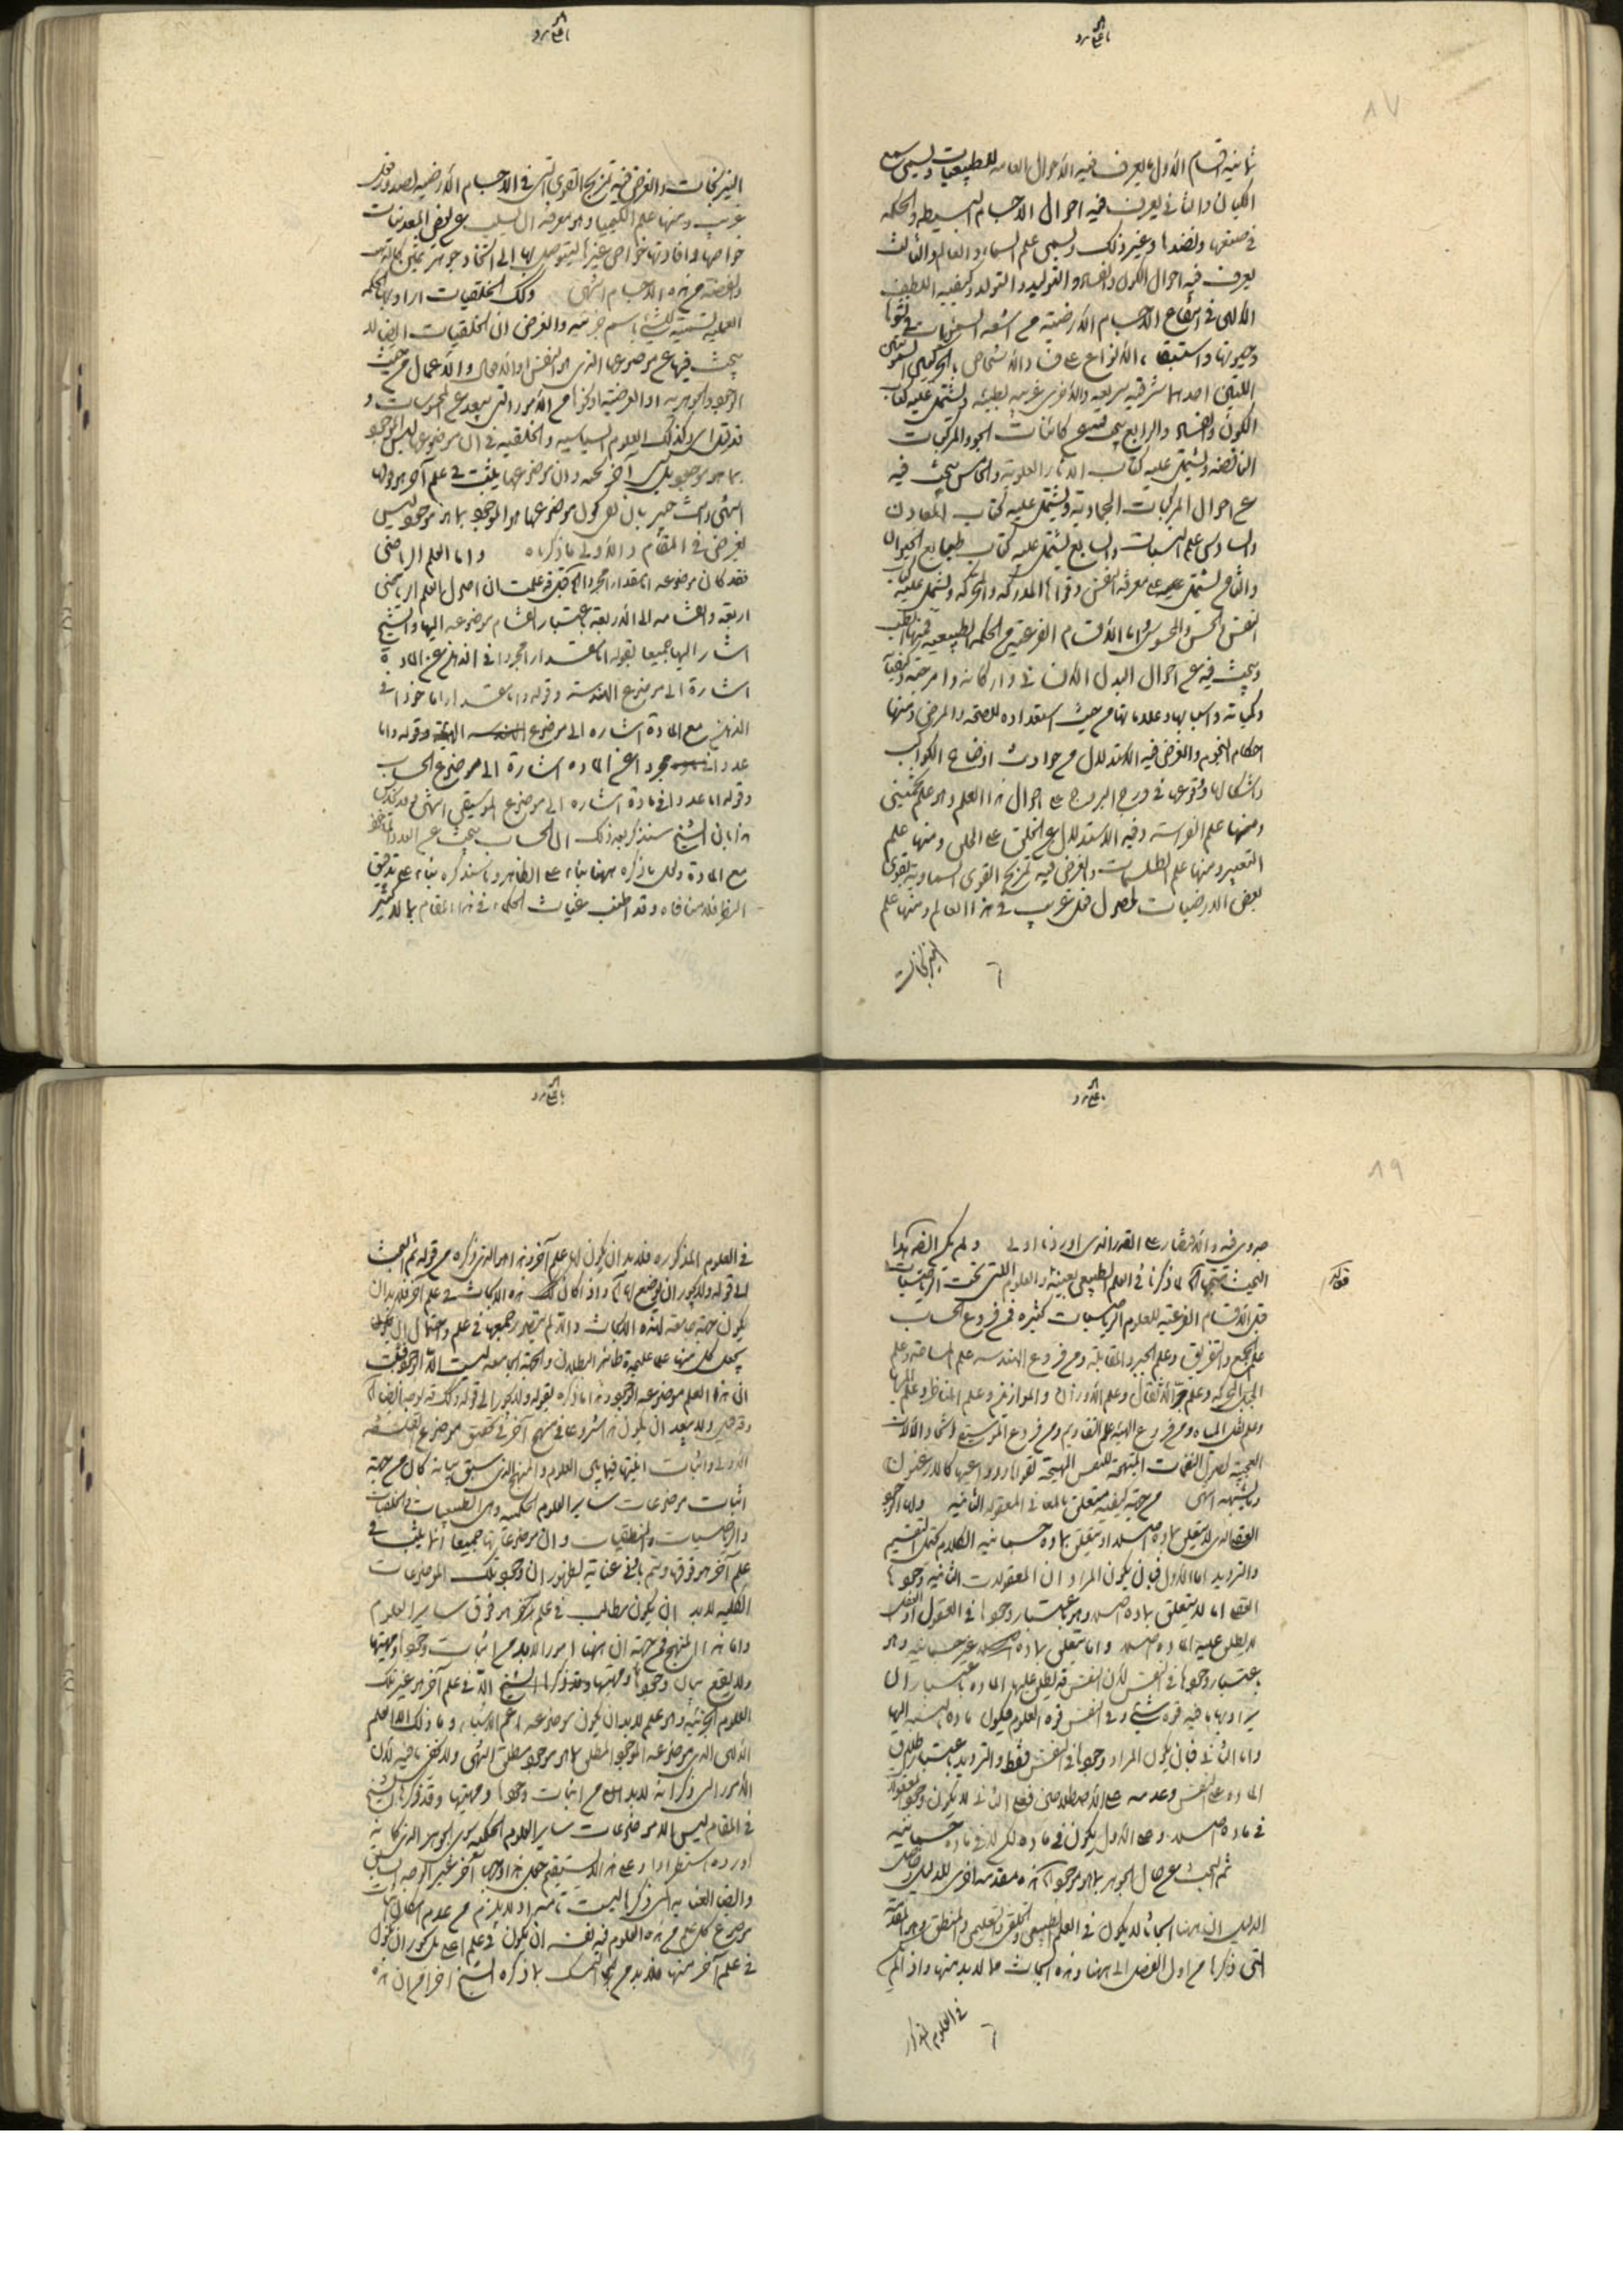 ثمانية اقسام الاول يعرف فيه الاحوال العامه للطبيعيات ويسمى سمع
الكيان والثاني يعرف فيه احوال الاجسام البسيطه والحكمه
في صنعها ونضدها وغير ذلك ويسمى علم السماء والعالم والثالث
يعرف فيه احوال الكون والفساد والتوليد والتولد وكيفيه اللطف
الالهى في انتفاع الاجسام الارضية من اشعه السمويات في نشوها
وحيوتها واستبقاء الانواع على فساد الاشخاص بالحركتين السماويتين
اللتين احدهما شرقيه سريعه والاخرى غربيه بطيئه ويشتمل عليه كتاب
الكون والفساد والرابع يبحث فيه عن كائنات الجو والمركبات
الناقصه ويشتمل عليه كتاب الاثار العلوية والخامس يبحث فيه
عن احوال المركبات الجمادية ويشتمل عليه كتاب المعادن
والسادس علم النبات والسابع يشتمل عليه كتاب طبايع الحيوان
والثامن يشتمل على معرفة النفس وقواها المدركه والمحركه ويشتمل عليه كتاب
النفس والحس والمحسوس واما الاقسام الفرعية من الحكمه الطبيعيه فمنها الطب
ويبحث فيه عن احوال البدن الانسانى واركانه وامزجته وكيفياته
وكمياته واسبابها وعلاماتها من حيث استعداده للصحه والمرض ومنها
احكام النجوم والغرض فيه الاستدلال من حوادث اوضاع الكواكب
واشكالها ووقوعها في درج البروج على احوال هذا العلم وهو علم تخمينى
ومنها علم الفراسه وفيه الاستدلال من الخلق على الخلق ومنها علم
التعبير ومنها علم الطلسمات والغرض فيه تمزيج القوى السماوية بقوى
بعض الارضيات لحصول فعل غريب في هذا العالم ومنها علم
النيرنجات
النيرنجات والغرض فيه تمزيج القوى التى في الاجسام الارضيه لصدور فعل
غريب ومنها علم الكيميا وهو معرفه ان يسلب عن بعض المعدنيات
خواصها وافادتها خواص غيرها ليتوصل بها الى اتخاذ جوهر ثمين كالذهب
والفضة من هذه الاجسام انتهى وكك الخلقيات اراد بها الحكمه
العمليه تسمية للشئ باسم جزئيه والغرض ان الخلقيات ايضا لا
يبحث فيها عن موضوعها الذى هو النفس والافعال والاعمال من حيث
الوجود والجوهريه او العرضيه او نحوها من الامور التى يبعد عن المحسوسات و
كذلك العلوم السياسيه والخلقيه في ان موضوعها ليس الموجود
بما هو موجود بل شئ آخر تحته وان موضوعها يثبت في علم آخر هو فوقها
انتهى وانت خبير بان نفى كون موضوعها هو الموجود بما هو موجود ليس
بغرض في المقام والاولى ما ذكرناه واما العلم الرياضى
فقد كان موضوعه اما مقدارا مجردا قد علمت ان اصول العلم الرياضى
اربعه وانقسامه الى الاربعة باعتبار انقسام موضوعه اليها والشيخ
اشار اليها جميعا بقوله اما مقدارا مجردا في الذهن عن المادة
اشارة الى موضوع الهندسه وقوله واما مقدارا ماخوذا في
الذهن مع المادة اشاره الى موضوع الهيئة وقوله واما
عددا مجردا عن الماده اشارة الى موضوع الحساب
وقوله اما عددا في مادة اشاره الى موضوع الموسيقى انتهى
هذا بان الشيخ سنذكر بعد ذلك ان الحساب يبحث عن العدد الماخوذ
مع المادة ولكن ما ذكره ههنا بناء على الظاهر وما سنذكره بناء على تدقيق
النظر فلا منافاه وقد اطنب غياث الحكماء في هذا المقام بما لا كثير
جدوى فيه والاقتصار على القدر الذى اوردناه اولى ولم يكن ايضا هذا
البحث لما ذكرنا في العلم الطبيعى بعينه والعلوم التى تحت الرياضيات
قيل الاقسام الفرعيه للعلوم الرياضيات كثيره فمن فروع الحساب
علم الجمع والتفريق وعلم الجبر والمقابله ومن فروع الهندسه علم المساحه وعلم
الحيل المتحركه وعلم جر الاثقال وعلم الاوزان والموازين وعلم المناظر وعلم المرايا
وعلم نقل المياه ومن فروع الهيئه علم التقاويم ومن فروع الموسيقى اتخاذ الالات
العجيبة لحصول النغمات المبتهجة للنفس المهيجة لقواها ودواعيها كالارغنون
وما يشبهه انتهى من جهة كيفيه ما يتعلق بالمعانى المعقوله الثانيه ولها الوجود
العقلى الذى لا يتعلق بماده اصلا او يتعلق بماده جسمانيه الكلام يحتمل التقسيم
والترديد اما الاول فبان يكون المراد ان المعقولات الثانيه وجودها
العقلى اما لا يتعلق بماده اصلا وهو باعتبار وجودها في العقول اذ العقل
لا يطلق عليه الماده اصلا واما يتعلق بماده غير جسمانيه وهو
باعتبار وجودها في النفس لان النفس قد يطلق عليها الماده باعتبار ان
يراد بها ما فيه قوه شئ وفى النفس قوه العلوم فيكون ماده بالنسبه اليها
واما الثانى فبان يكون المراد وجودها في النفس فقط والترديد باعتبار اطلاق
الماده على النفس وعدمه على الاصطلاحين فعلى الثانى لا يكون وجود المعقول
في ماده اصلا وعلى الاول يكون في ماده لكن لا في ماده جسمانيه
ثم البحث عن حال الجوهر بما هو موجود آه هذه مقدمه اخرى للدليل وحاصل
الدليل ان ههنا ابحاثا لا يكون في العلم الطبيعى والخلقى والتعليمى والمنطقى وهى المقدمة
التى ذكرها من اول الفصل الى ههنا وهذه ابحاث مما لا بد منها واذ لم يكن
في العلوم المذكور
في العلوم المذكوره فلا بد ان يكون لها علم آخر وهذا هو الذى ذكره من قوله ثم البحث
الى قوله ولا يجوز ان يوضع لها آه واذ كان كك هذه الابحاث في علم آخر فلا بد ان
يكون جهة جامعة لهذه الابحاث والا لم يتصور جمعها في علم واحتمال ان يكون
يجعل كل منها علما عليحدة ظاهر البطلان والجهة الجامعه ليست الا الوجود فثبت
ان هذا العلم موضوعه الموجود وهذا ما ذكره بقوله ولا يجوز الى قوله
ولا يبعد ان يكون هذا شروعا في منهج آخر في تحقيق موضوع الفلسفه
الاولى واثبات انيتها فيما بين العلوم والمنهج الذى سبق بيانه كان من جهة
اثبات موضوعات ساير العلوم الحكميه وهى الطبيعيات والخلقيات
والرياضيات والمنطقيات وان موضوعاتها جميعا انما يثبت في
علم آخر هو فوقها وتم بادنى عناية لظهور ان وجود تلك الموضوعات
الكليه لابد ان يكون مطالب في علم آخر هو فوق ساير العلوم
واما هذا المنهج فمن جهة ان ههنا امورا لابد من اثبات وجودها ومهيتها
ولا يقع بيان وجودها ومهيتها وقد ذكرها الشيخ الا في علم آخر هو غير تلك
العلوم الجزئيه وهو علم لابد ان يكون موضوعه اعم الاشياء وما ذلك الا العلم
الالهى الذى موضوعه الموجود المطلق بما هو موجود مطلق انتهى ولا يخفى ما فيه لان
الامور التى ذكر انه لابد من اثبات وجودها ومهيتها وقد ذكرها الشيخ
في المقام ليس الا موضوعات ساير العلوم الحكميه سوى الجوهر الذى كانه
اورده استطرادا وعلى هذا لا يستقيم جعل هذا وجها آخر غير الوجه السابق
وايضا العنايه التى ذكرها ليست تامه اذ لا يلزم من عدم امكان اثبات
موضوع كل علم من هذه العلوم فيه نفسه ان يكون في علم اعلى بل يجوز ان يكون
في علم آخر منها فلا بد من التمسك بما ذكره الشيخ آخرا من ان هذه